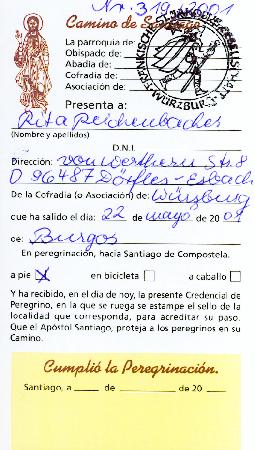 Nr. 319/2001
Camino de Santiago
La parroquia de:
Obispado de:
Abadia de:
Cofradia de:
Asociación de:
FRÄNKISCHE ST. JAKOBUS-GESELLSCHAFT
WÜRZBURG
Presenta a:
Rita Reichenbacher
(Nombre y apellidos)
D.N.I.
Dirección: von Werthern Str. 8
D 96487 Dörfles-Esbach
De la Cofradia (o Asociación) de: Würzburg
que ha salido el día: 22 de mayo de 2001
de: Burgos
En peregrinación, hacia Santiago de Compostela.
a pie X en bicicleta a caballo
Y ha recibido, en el día de hoy, la presente Credencial de
Peregrino, en la que se ruega se estampe el sello de la
localidad que corresponda, para acreditar su paso.
Que el Apóstol Santiago, proteja a los peregrinos en su
Camino.
Cumplió la Peregrinación.
Santiago, a ___ de ______ de 20 ___